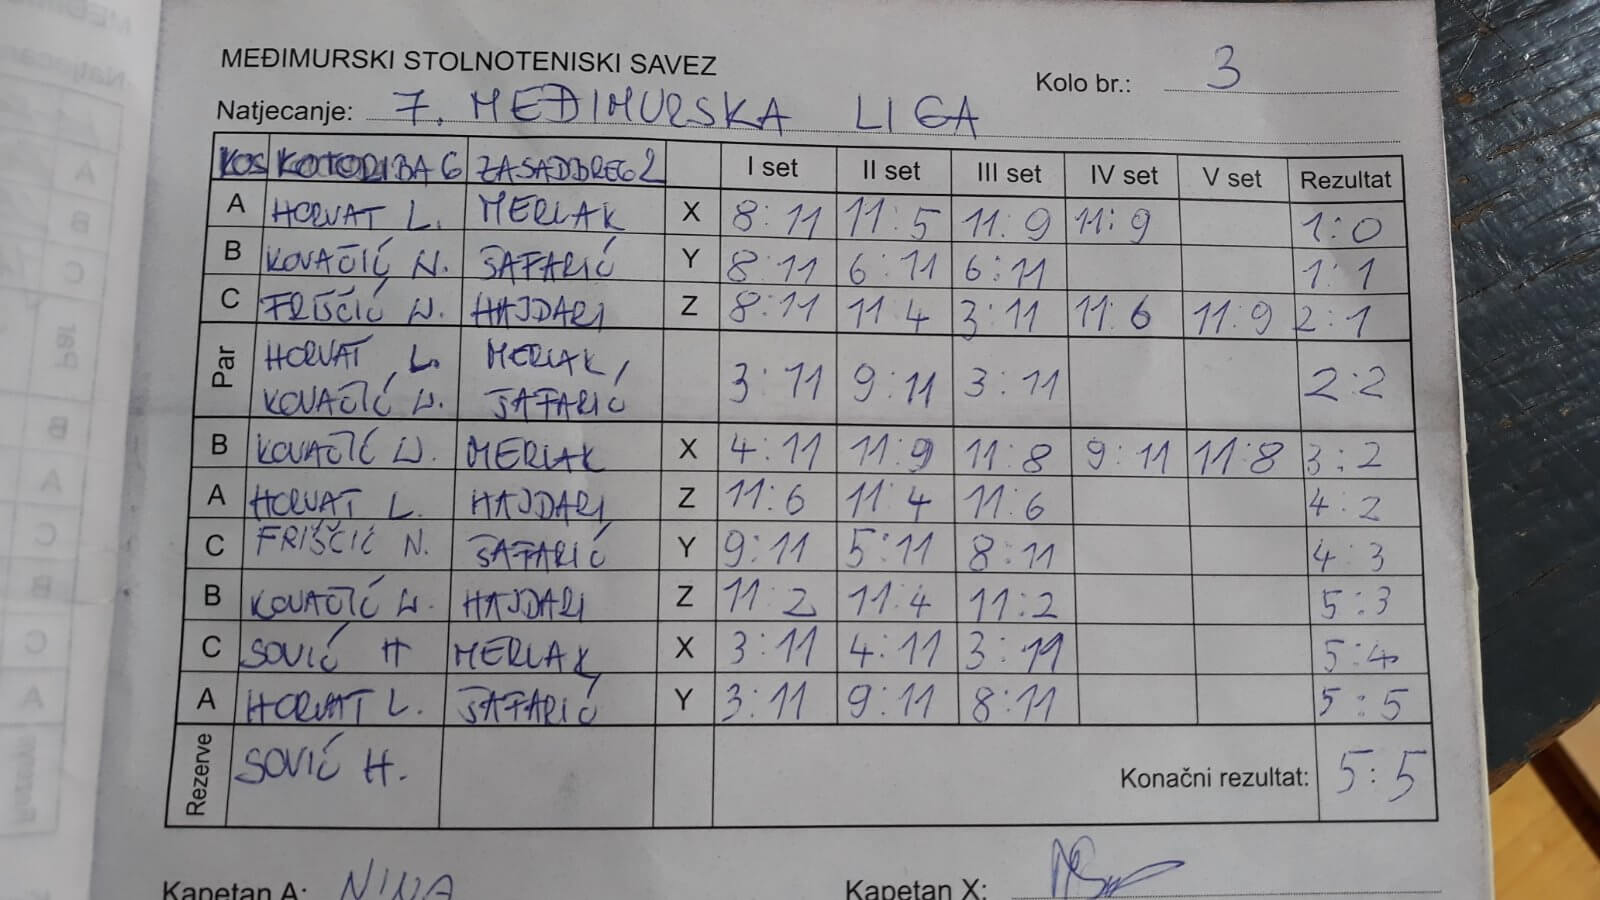 MEĐIMURSKI STOLNOTENISKI SAVEZ
Kolo br.: 3
Natjecanje: 7. MEĐIMURSKA LIGA
KOTORIBA 6 ZASADBREG 2 I set II set III set IV set V set Rezultat
A HORVAT L. MERLAK X 8:11 11:5 11:9 11:9 1:0
B KOVAČIĆ N. ŠAFARIĆ Y 8:11 6:11 6:11 1:1
C FRIŠČIĆ N. HAJDARI Z 8:11 11:4 3:11 11:6 11:9 2:1
Par HORVAT L. MERLAK, 3:11 9:11 3:11 2:2
KOVAČIĆ N. ŠAFARIĆ
B KOVAČIĆ N. MERLAK X 4:11 11:9 11:8 9:11 11:8 3:2
A HORVAT L. HAJDARI Z 11:6 11:4 11:6 4:2
C FRIŠČIĆ N. ŠAFARIĆ Y 9:11 5:11 8:11 4:3
B KOVAČIĆ N. HAJDARI Z 11:2 11:4 11:2 5:3
C SOVIĆ H MERLAK X 3:11 4:11 3:11 5:4
A HORVAT L. ŠAFARIĆ Y 3:11 9:11 8:11 5:5
Rezerve SOVIĆ H. Konačni rezultat: 5:5
Kapetan A: NINA Kapetan X: